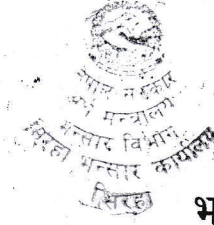 नेपाल सरकार
अर्थ मन्त्रालय
भन्सार विभाग
सिरहा भन्सार कार्यालय
सिरहा
भ